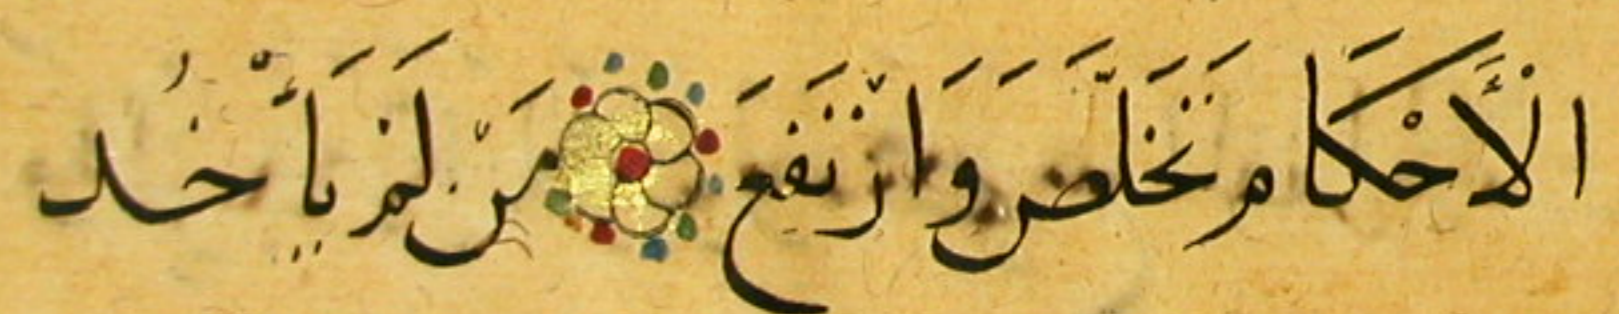 الْأَحْكَامَ تَخَلَّصَ وَارْتَفَعَ مَنْ لَمْ يَأْخُذ